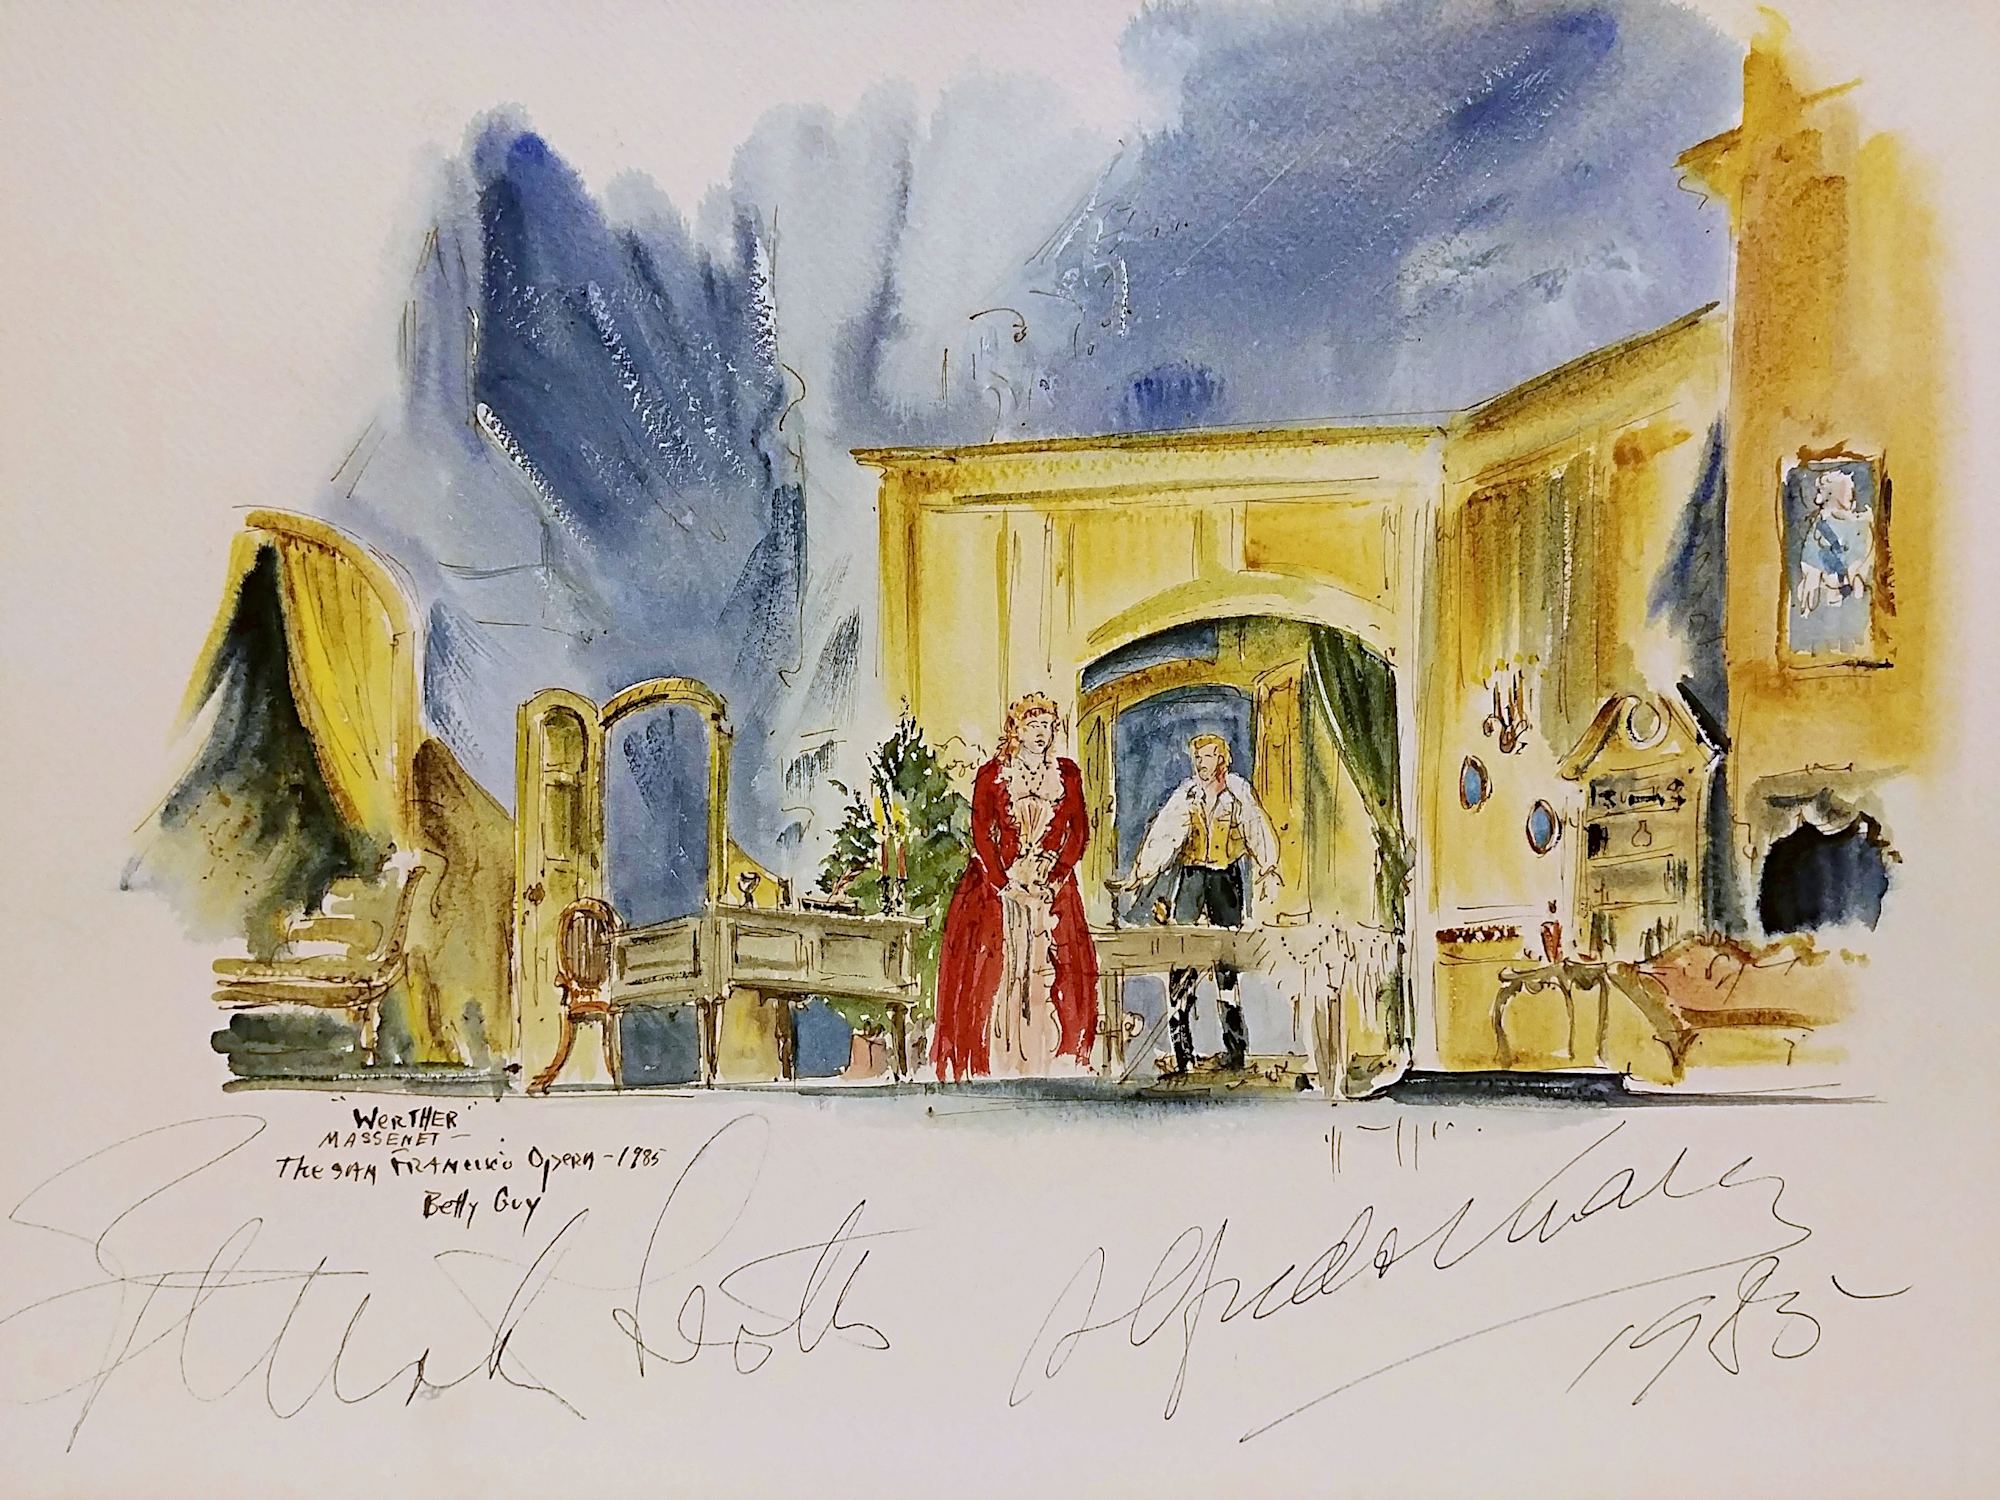 "WERTHER"
MASSENET-
THE SAN FRANCISCO OPERA-1985
Betty Guy
Alfredo Kraus
1985